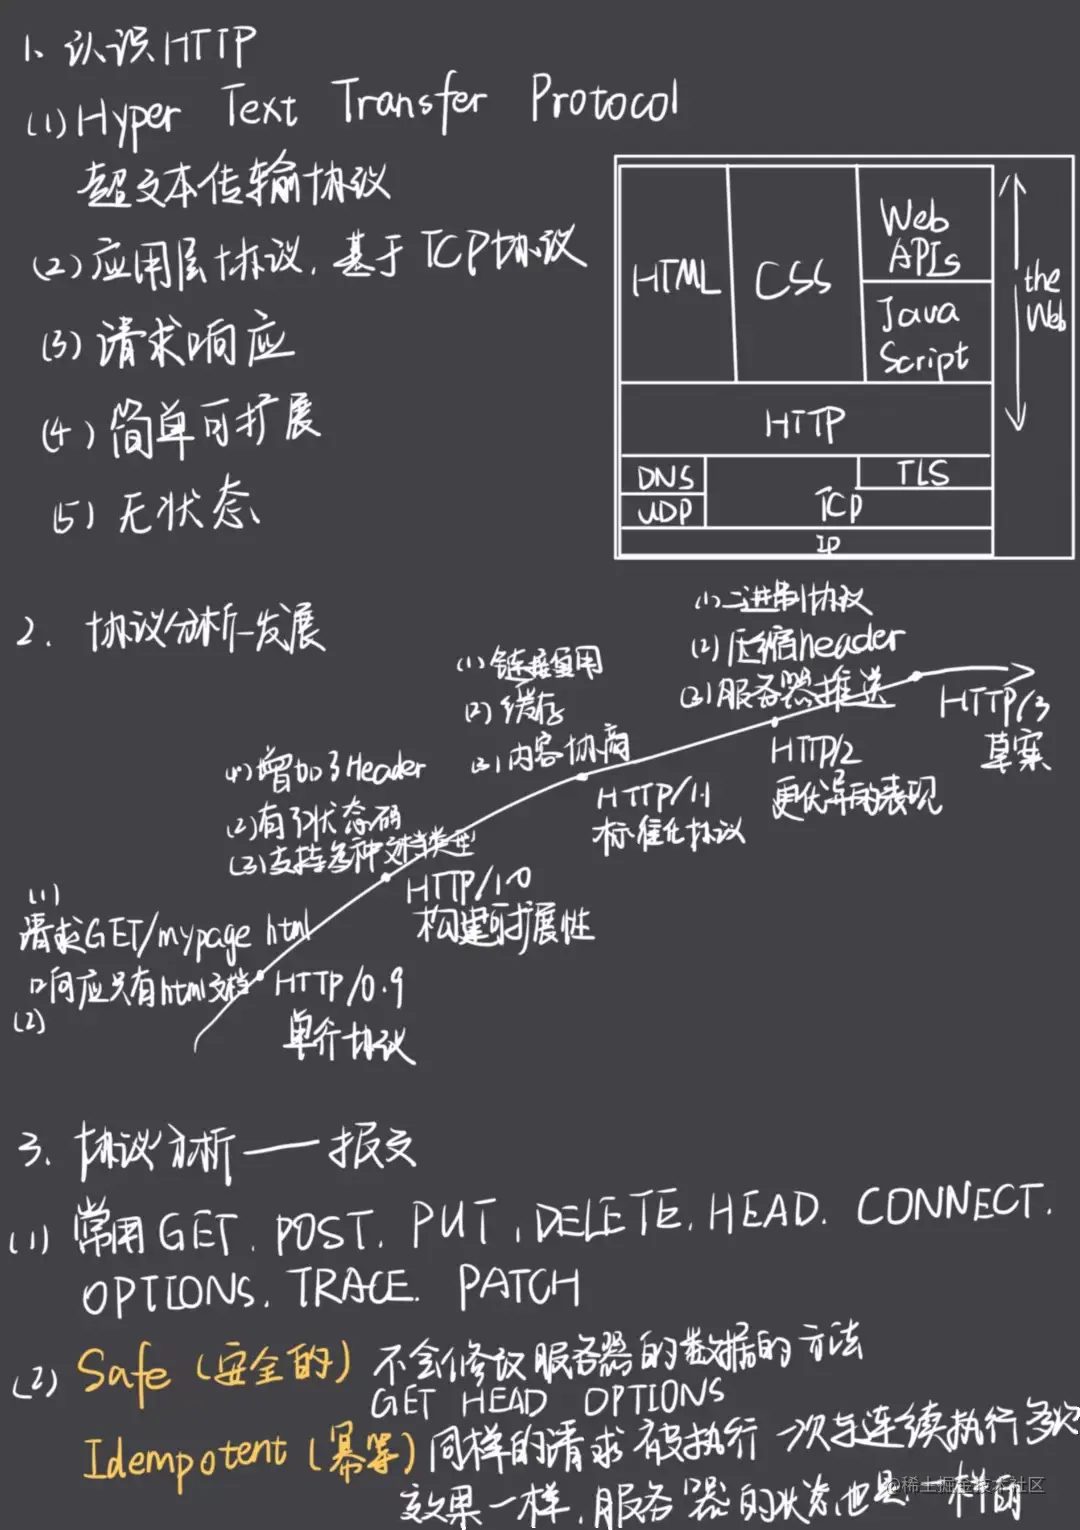 1、认识HTTP
(1) Hyper Text Transfer Protocol
超文本传输协议
(2) 应用层协议, 基于TCP协议
(3) 请求响应
(4) 简单可扩展
(5) 无状态
HTML
CSS
Web
APIs
Java
Script
the
Web
HTTP
DNS
TLS
UDP
TCP
IP
2. 协议分析—发展
(1) 二进制协议
(2) 压缩header
(3) 服务器推送
(1) 链接复用
(2) 缓存
(3) 内容协商
HTTP/3
草案
HTTP/2
更优异的表现
(1) 增加了Header
(2) 有了状态码
(3) 支持多种文档类型
HTTP/1.1
标准化协议
HTTP/1.0
构建可扩展性
(1)
请求GET/mypage html
响应只有html文档
(2)
HTTP/0.9
单行协议
3. 协议分析——报文
(1) 常用GET、POST、PUT、DELETE、HEAD、CONNECT、
OPTIONS、TRACE、PATCH
(2) Safe (安全的) 不会修改服务器的数据的方法
GET HEAD OPTIONS
Idempotent (幂等) 同样的请求被执行一次与连续执行多次
效果一样, 服务器的状态也是一样的
@稀土掘金技术社区